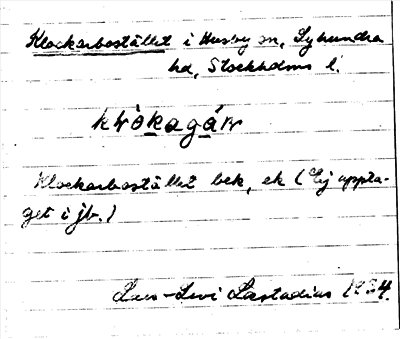 Klockarbostället i Husby sn, Lyhundra
hd, Stockholms l.
Klockarbostället bek, ek (Ej uppta-
get i jb.)
Lars-Levi Læstadius 1934.